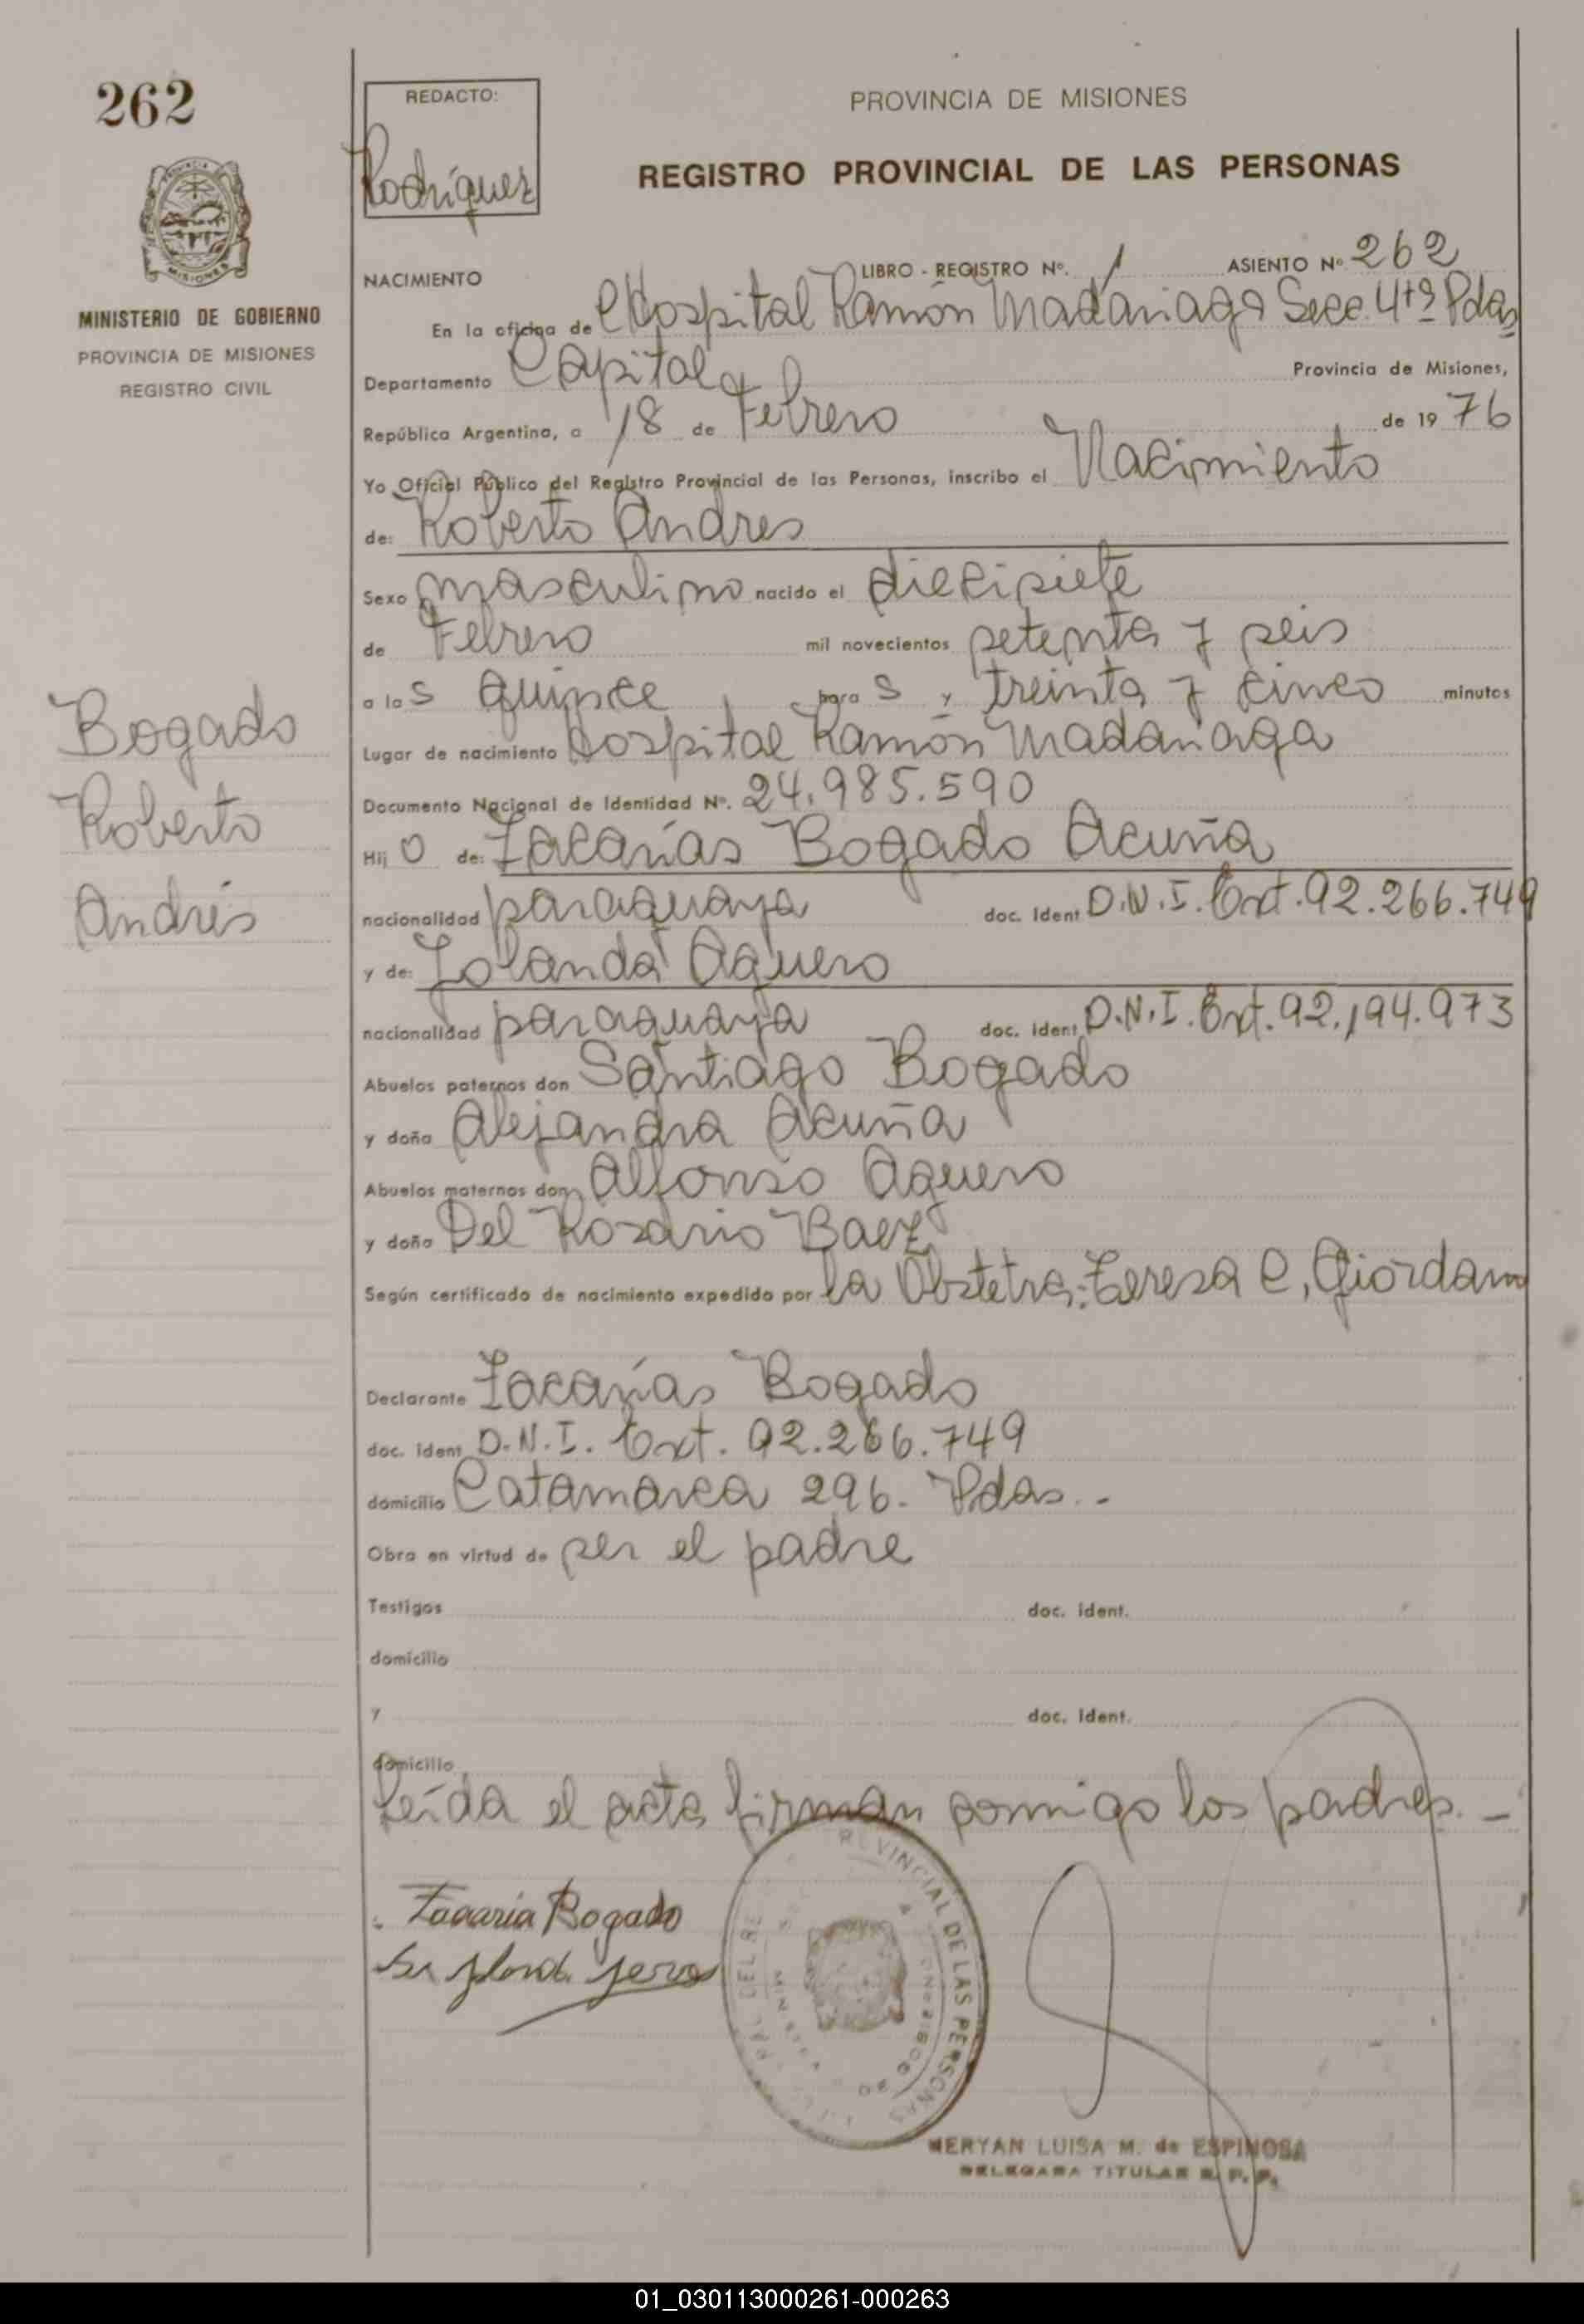 262
REDACTO:
Rodríguez
PROVINCIA DE MISIONES
REGISTRO PROVINCIAL DE LAS PERSONAS
MINISTERIO DE GOBIERNO
PROVINCIA DE MISIONES
REGISTRO CIVIL
NACIMIENTO LIBRO - REGISTRO Nº. 1 ASIENTO Nº 262
En la oficina de Hospital Ramón Madariaga Secc. 4tª Pdas
Departamento Capital Provincia de Misiones,
República Argentina, a 18 de Febrero de 19 76
Yo Oficial Público del Registro Provincial de las Personas, inscribo el Nacimiento
de: Roberto Andres
Sexo masculino nacido el diecisiete
de Febrero mil novecientos setenta y seis
a las quince horas y treinta y cinco minutos
Lugar de nacimiento Hospital Ramón Madariaga
Documento Nacional de Identidad Nº. 24.985.590
Hijo de: Zacarías Bogado Acuña
nacionalidad paraguaya doc. Ident. D.N.I. Ext. 92.266.749
y de: Yolanda Aguero
nacionalidad paraguaya doc. ident. D.N.I. Ext. 92.194.973
Abuelos paternos don Santiago Bogado
y doña Alejandra Acuña
Abuelos maternos don Alfonso Aguero
y doña Del Rosario Baez
Según certificado de nacimiento expedido por la Obstetra: Teresa C. Giordano
Declarante Zacarías Bogado
doc. ident. D.N.I. Ext. 92.266.749
domicilio Catamarca 296. Pdas. -
Obra en virtud de ser el padre
Testigos doc. ident.
domicilio
y doc. ident.
domicilio
Leída el acta firman conmigo los padres. -
Bogado
Roberto
Andrés
Zacaria Bogado
PROVINCIAL DE LAS PERSONAS
MERYAN LUISA M. de ESPINOSA
DELEGADA TITULAR R. P. P.
01_030113000261-000263